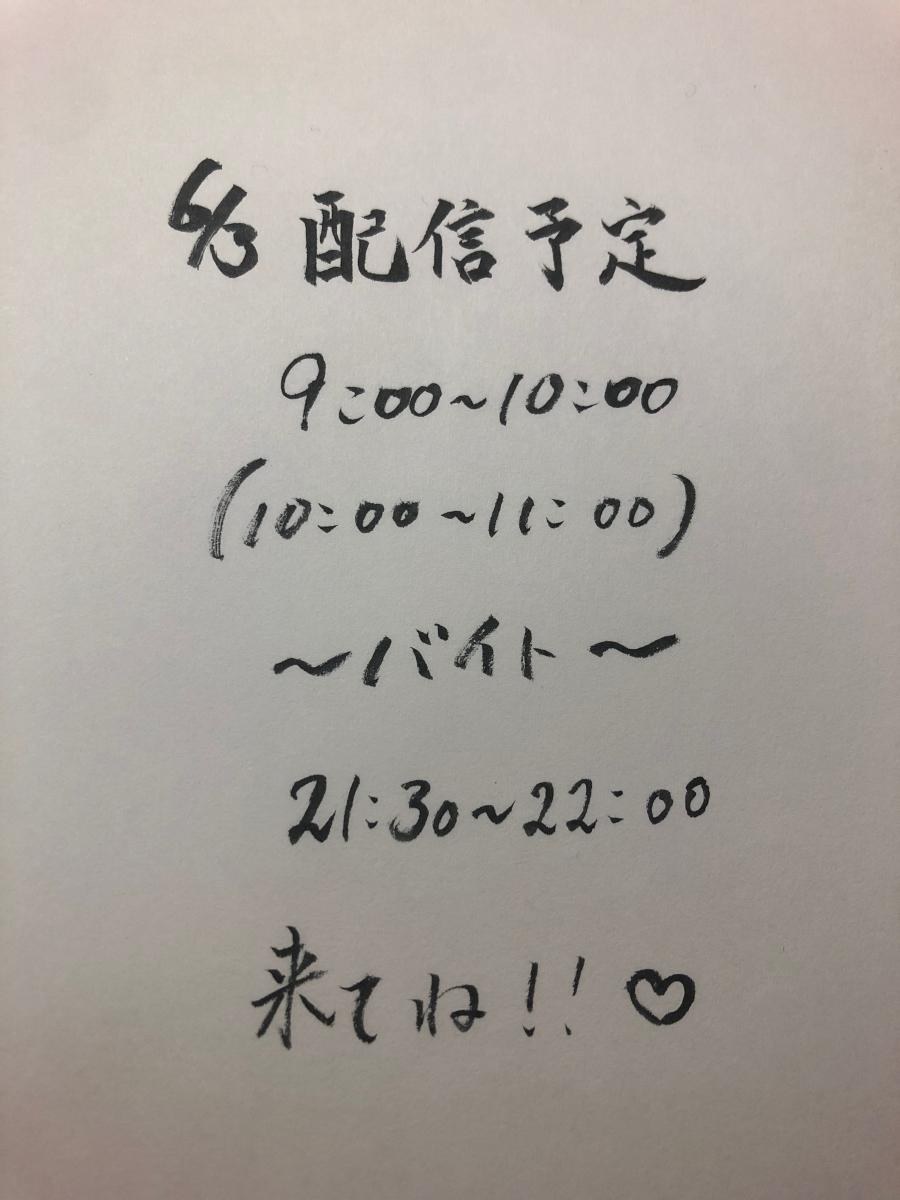 6/3 配信予定
9:00~10:00
(10:00~11:00)
~バイト~
21:30~22:00
来てね!!♡